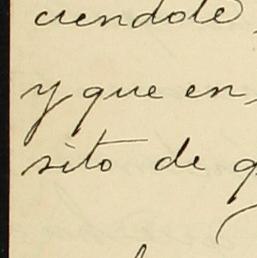 ciendole,
y que en
sito de q